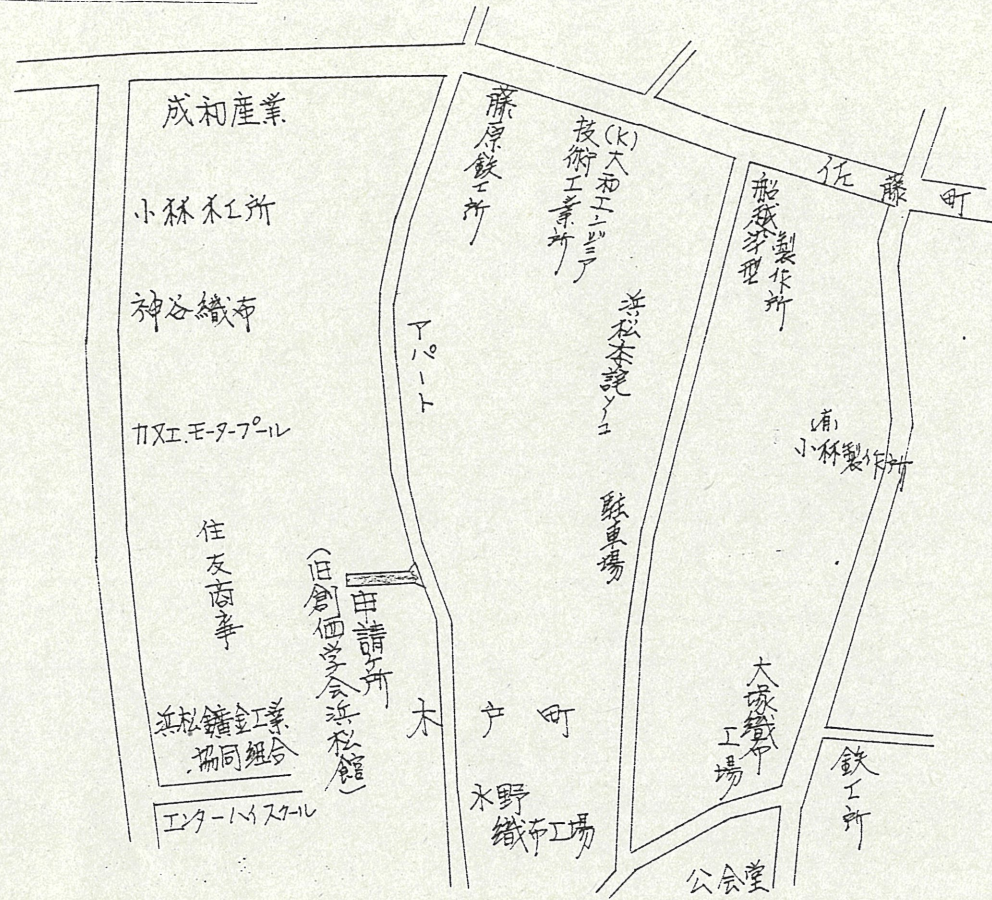 成和産業
小林木工所
神谷織布
カヌエ.モータープール
住友商事
浜松鍍金工業
協同組合
エンターハイスクール
(旧創価学会浜松館)
申請ヶ所
アパート
藤原鉄工所
(K)大和エンジニア
技術工業所
浜松木
駐車場
木戸町
水野
織布工場
佐藤町
船越染型
製作所
(有)
小林製作所
大塚織布
工場
鉄工所
公会堂